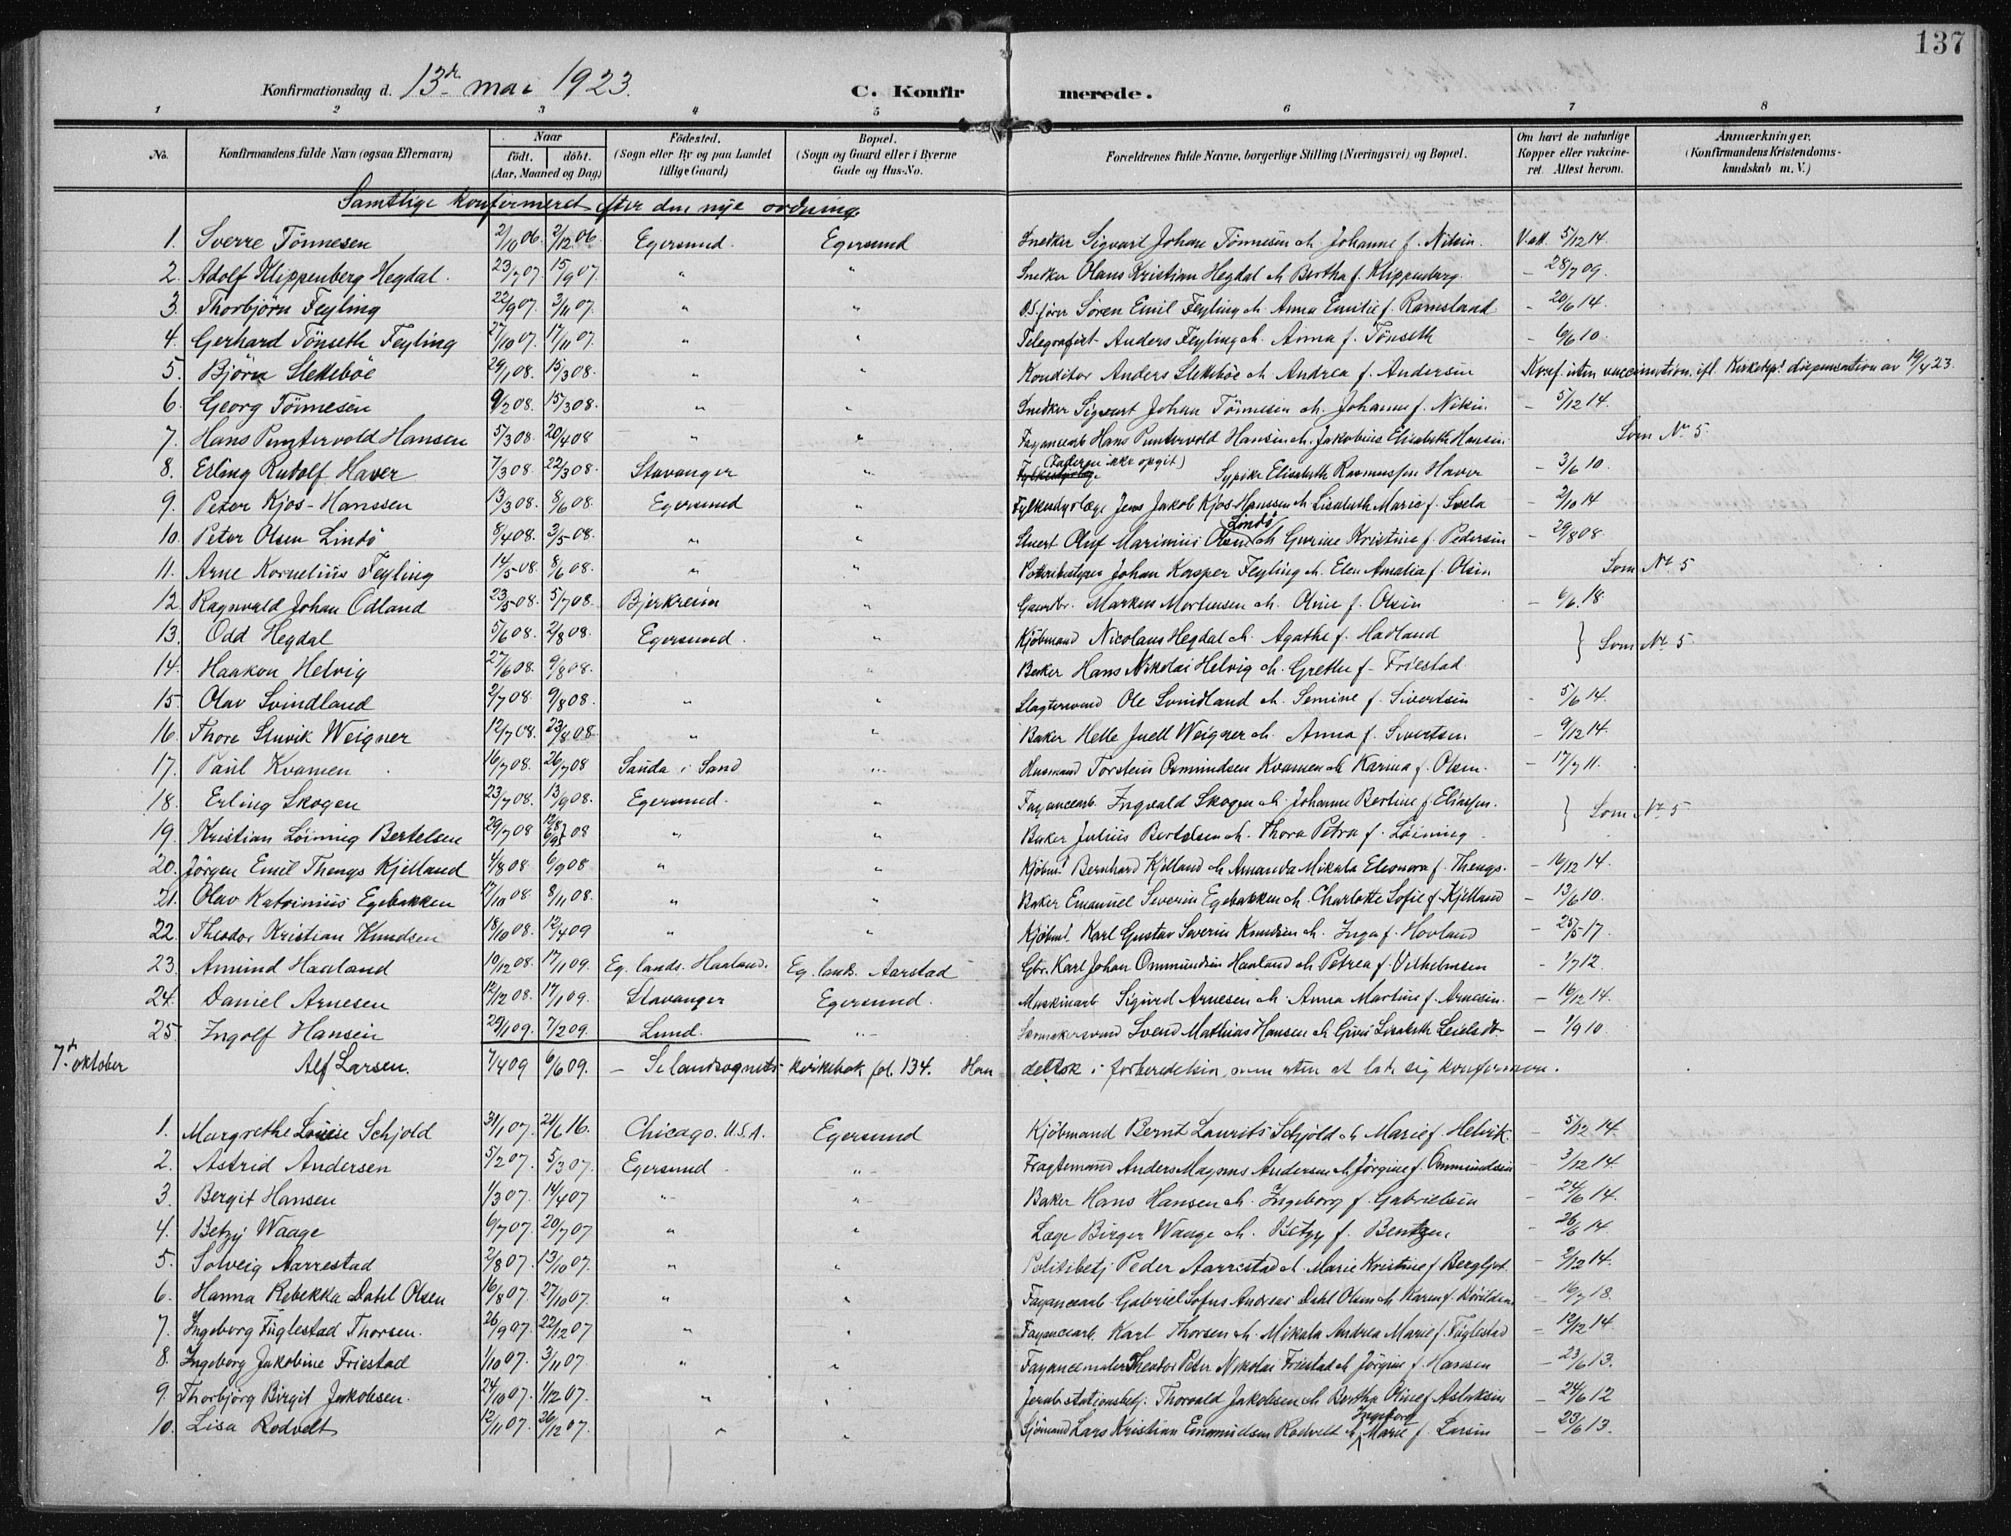 137
Konfirmationsdag d. 13de mai 1923.
C. Konfirmerede.
1 2 3 4 5 6 7 8
No. Konfirmandens fulde Navn (ogsaa Efternavn) Naar födt. döbt. (Aar, Maaned og Dag) Födested. (Sogn eller By og paa Landet tillige Gaard) Bopæl. (Sogn og Gaard eller i Byerne Gade og Hus-No. Forældrenes fulde Navne, borgerlige Stilling (Næringsvei) og Bopæl. Om havt de naturlige Kopper eller vakcineret. Attest herom. Anmærkninger. (Konfirmandens Kristendomskundskab m. V.)
Samtlige konfirmeret efter den nye ordning.
1. Sverre Tönnesen 2/10 06. 2/12 06. Egersund. Egersund Snekker Sigvart Johan Tönnesen & Johanne f. Nilsen. V. att. 5/12 14.
2. Adolf Klippenberg Hegdal. 23/7 07. 15/9 07. " " Snekker Olaus Kristian Hegdal & Bertha f. Klippenberg. – 28/7 09.
3. Thorbjörn Feyling 22/9 07. 3/11 07. " " D.S. förer Sören Emil Feyling & Anna Emilie f. Ramsland. – 20/6 14.
4. Gerhard Tönseth Feyling 27/10 07. 17/11 07. " " Telegrafist Anders Feyling & Anna f. Tönseth – 6/6 10.
5. Björn Slekeböe 29/1 08. 15/3 08. " " Konditor Anders Slekeböe & Andrea f. Andersen Konf. uten vaccination. ifl. Kirkedep. dispensation av 19/4 23.
6. Georg Tönnesen 9/2 08. 15/3 08. " " Snedker Sigvart Johan Tönnesen & Johanne f. Nilsen. – 5/12 14.
7. Hans Puntervold Hansen 5/3 08. 20/4 08 " " Fayancearb. Hans Puntervold Hansen & Jakobine Elisabeth Hansen. Som No. 5.
8. Erling Rudolf Haver 7/3 08. 22/3 08. Stavanger " (Faderen ikke opgit) Sypike Elisabeth Rasmussen Haver – 3/6 10.
9. Peter Kjos-Hanssen 13/3 08. 8/6 08. Egersund " Fylkesdyrlæge Jens Jakob Kjos Hanssen & Lisabeth Marie f. Svela – 2/10 14
10. Peter Olsen Lindö 8/4 08. 3/5 08. " " Stuert Oluf Marinius Olsen Lindö & Gurine Kristine f. Pedersen – 29/8 08.
11. Arne Kornelius Feyling 14/5 08. 8/6 08. " " Johan Kasper Feyling & Elen Amalia f. Olsen Som No. 5
12. Ragnvald Johan Odland 23/5 08. 5/7 08. Bjerkreim " Gaardbr. Markus Mortensen & Oline f. Olsen – 6/6 18.
13. Odd Hegdal 5/6 08. 2/8 08. Egersund. " Kjöbmand Nicolaus Hegdal & Agathe f. Hadland } Som No. 5
14. Haakon Helvig 27/6 08. 9/8 08. " " Baker Hans Nikolai Helvig & Grethe f. Friestad
15. Olav Svindland 2/7 08. 9/8 08. " " Slagtersvend Ole Svindland & Semine f. Sivertsen – 5/6 14.
16. Thore Stuvik Weigner 12/7 08. 23/8 08. " " Baker Helle Juell Weigner & Anna f. Sivertsen. – 9/12 14.
17. Paul Kvamen 16/7 08. 26/7 08 Sauda i Sand " Husmand Torstein Osmundsen Kvamen & Karina f. Olsen. – 17/7 11.
18. Erling Skogen 23/7 08. 13/9 08. Egersund. " Fayancearb. Ingvald Skogen & Johanne Bertine f. Eliassen. } Som No. 5
19. Kristian Löining Bertelsen 29/7 08 12/8 6/9 } 08 " " Baker Julius Bertelsen & Thora Petra f. Löining.
20. Jörgen Emil Thengs Kjelland 4/8 08. 6/9 08. " " Kjöbmd. Bernhard Kjelland & Amanda Mikala Eleonora f. Thengs. – 16/12 14.
21. Olav Katrinius Egebakken 17/10 08. 8/11 08. " " Baker Emanuel Severin Egebakken & Charlotte Sofie f. Kjelland – 13/6 10.
22. Theodor Kristian Knudsen 18/10 08. 12/4 09 " " Kjöbmd. Karl Gustav Severin Knudsen & Inga f. Hovland – 25/5 17.
23. Amund Haaland 10/12 08. 17/1 09. Eg. lands. Haaland. Eg. lands. Aarstad Gbr. Karl Johan Ommundsen Haaland & Petrea f. Vilhelmsen – 1/7 12.
24. Daniel Arnesen 12/12 08. 17/1 09. Stavanger Egersund. Maskinarb. Sigurd Arnesen & Anna Martine f. Arnesen. – 16/12 14.
25. Ingolf Hansen 29/1 09. 7/2 09. Lund. " Skomakersvend Svend Mathias Hansen & Guri Lisabeth – 1/9 10.
7de oktober Alf Larsen. 7/4 09 6/6 09. – Se landsognets kirkebok fol. 134. Han deltok i forberedelsen, men uten at lade sig konfirmere.
1. Margrethe Louise Schjold 31/1 07. 21/6 16. Chicago. U.S.A. Egersund Kjöbmand Bernt Laurits Schjöld & Marie f. Helvik. – 5/12 14.
2. Astrid Andersen 5/2 07. 5/3 07. Egersund " Fragtemand Anders Magnus Andersen & Jörgine f. Ommundsen – 3/12 14.
3. Bergit Hansen 1/3 07. 14/4 07 " " Baker Hans Hansen & Ingeborg f. Gabrielsen – 24/6 14.
4. Betzy Waage 6/7 07. 20/7 07 " " Læge Birger Waage & Betzy f. Bentzen. – 26/6 14
5. Solveig Aarrestad 2/8 07. 13/10 07. " " Politibetj. Peder Aarrestad & Marie Kristine f. Bergljot. – 2/12 14.
6. Hanna Rebekka Dahl Olsen 16/8 07. 27/10 07. " " Fayancearb. Gabriel Sofus Andreas Dahl Olsen & Karen f. – 16/7 18.
7. Ingeborg Fuglestad Thorsen. 26/9 07. 22/12 07 " " Fayancearb. Karl Thorsen & Mikala Andrea Marie f. Fuglestad – 12/12 14.
8. Ingeborg Jakobine Friestad 1/10 07. 3/11 07. " " Fayancemaler Theodor Peter Nikolai Friestad & Jörgine f. Hansen – 23/6 13.
9. Thorbjörg Birgit Jakobsen. 24/10 07. 1/12 07. " " Jernb. stationsbetj. Thorvald Jakobsen & Bertha Oline f. Aslaksen – 24/6 12
10. Lisa Rodvelt 12/11 07. 26/12 07. " " Sjömand Lars Kristian Emanuelsen Rodvelt & Ingeborg Marie f. Larsen – 23/6 13.